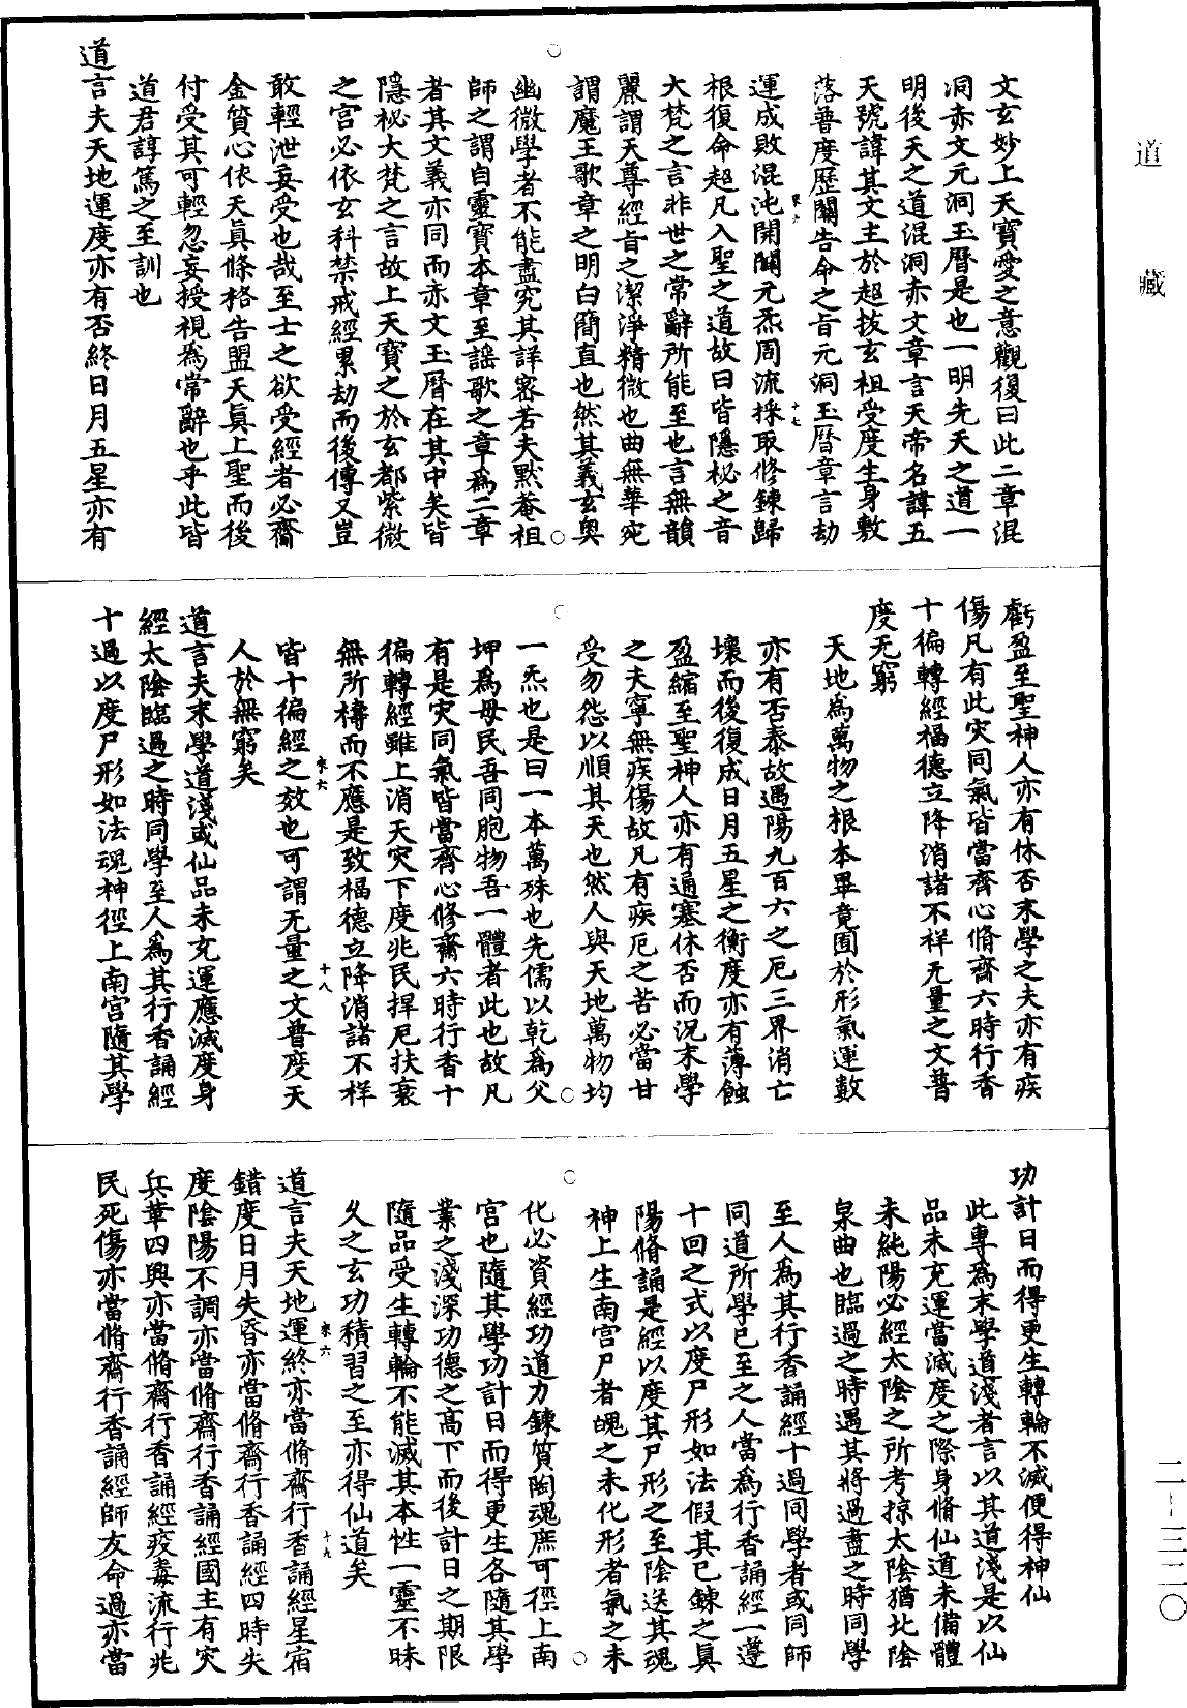 道藏
文玄妙上天寶愛之意觀復曰此二章混
洞赤文元洞玉曆是也一明先天之道一
明後天之道混洞赤文章言天帝名諱五
天號諱其文主於超拔玄祖受度生身敷
落普度歷關告命之旨元洞玉曆章言劫
運成敗混沌開闢元炁周流採取修鍊歸
根復命超凡入聖之道故曰皆隱祕之音
大梵之言非世之常辭所能至也言無韻
麗謂天尊經旨之潔淨精微也曲無華宛
謂魔王歌章之明白簡直也然其義玄奧
幽微學者不能盡究其詳密若夫默菴祖
師之謂自靈寶本章至謡歌之章爲二章
者其文義亦同而赤文玉曆在其中矣皆
隱祕大梵之言故上天寶之於玄都紫微
之宫必依玄科禁戒經累劫而後傳又豈
敢輕泄妄受也哉至士之欲受經者必齎
金質心依天眞條格告盟天眞上聖而後
付受其可輕忽妄授視爲常辭也乎此皆
道君諄篤之至訓也
道言夫天地運度亦有否終日月五星亦有
虧盈至聖神人亦有休否末學之夫亦有疾
傷凡有此灾同氣皆當齊心脩齋六時行香
十徧轉經福德立降消諸不祥无量之文普
度无窮
天地爲萬物之根本畢竟囿於形氣運數
亦有否泰故遇陽九百六之厄三界消亡
壞而後復成日月五星之衡度亦有薄蝕
盈縮至聖神人亦有通塞休否而況末學
之夫寧無疾傷故凡有疾厄之苦必當甘
受勿怨以順其天也然人與天地萬物均
一炁也是曰一本萬殊也先儒以乾爲父
坤爲母民吾同胞物吾一體者此也故凡
有是灾同氣皆當齊心修齋六時行香十
徧轉經雖上消天灾下度兆民捍厄扶衰
無所禱而不應是致福德立降消諸不祥
皆十徧經之效也可謂无量之文普度天
人於無窮矣
道言夫末學道淺或仙品未充運應滅度身
經太陰臨過之時同學至人爲其行香誦經
十過以度尸形如法魂神徑上南宫隨其學
功計日而得更生轉輪不滅便得神仙
此專爲末學道淺者言以其道淺是以仙
品未充運當滅度之際身脩仙道未備體
未純陽必經太陰之所考掠太陰猶北陰
泉曲也臨過之時遇其將過盡之時同學
至人爲其行香誦經十過同學者或同師
同道所學已至之人當爲行香誦經一遵
十回之式以度尸形如法假其已鍊之眞
陽脩誦是經以度其尸形之至陰送其魂
神上生南宫尸者魄之未化形者氣之未
化必資經功道力鍊質陶魂庶可徑上南
宮也隨其學功計日而得更生各隨其學
業之淺深功德之高下而後計日之期限
隨品受生轉輪不能滅其本性一靈不昧
久之玄功積習之至亦得仙道矣
道言夫天地運終亦當脩齋行香誦經星宿
錯度日月失昏亦當脩齋行香誦經四時失
度陰陽不調亦當脩齋行香誦經國主有灾
兵革四興亦當脩齋行香誦經疫毒流行兆
民死傷亦當脩齋行香誦經師友命過亦當
二—三二〇